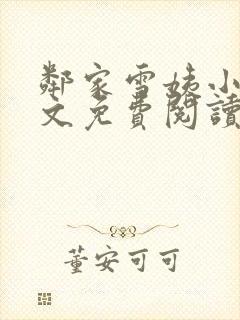 鄰家雪姨小
文免費閱讀
董安可可